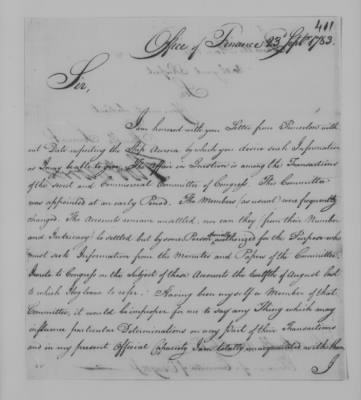 411
Office of Finance 23d Septr 1783.
Sir,
I am honored with your Letter from Princetown with
out Date respecting the Ship Aurora by which you desire such Information
as I may be able to give. The Affair in Question is among the Transactions
of the secret and Commercial Committee of Congress. This Committee
was appointed at an early Period. The Members (as usual) were frequently
changed. The Accounts remain unsettled, nor can they from their Number
and Intricacy be settled but by some Person authorized for the Purpose who
must seek Information from the Minutes and Papers of the Committee.
I wrote to Congress on the Subject of these Accounts the twelfth of August last
to which I beg leave to refer. Having been myself a Member of that
Committee, it would be improper for me to say any Thing which may
influence particular Determinations on any Part of their Transactions
and in my present Official Capacity I am totally unacquainted with them
I